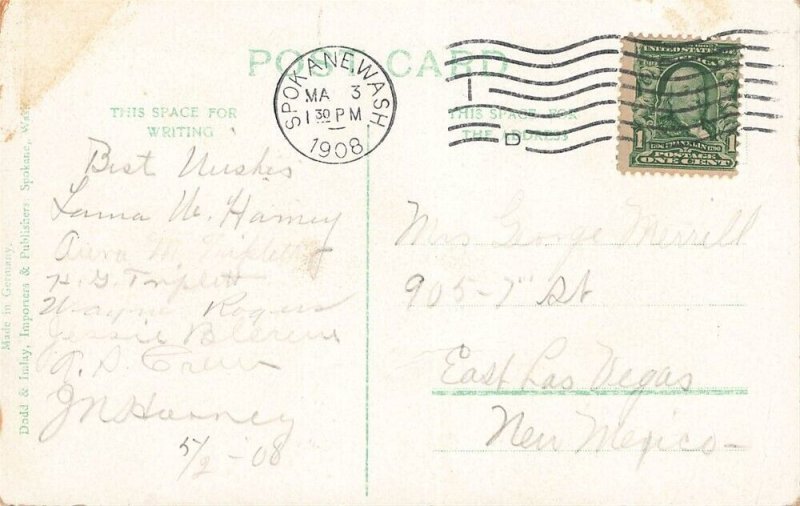 POST CARD
SPOKANE, WASH
MA 3
1 30 PM
1908
D
UNITED STATES
1 FRANKLIN 1
POSTAGE
ONE CENT
THIS SPACE FOR
WRITING
THIS SPACE FOR
THE ADDRESS
Made in Germany.
Dodd & Imlay, Importers & Publishers, Spokane, Wash.
Best Wishes
W. Harney
M. Triplett
H. G. Triplett
Wayne Rogers
Jessie
J N Harney
5/2 - 08
Mrs George Merrill
905 - 7" St
East Las Vegas
New Mexico -